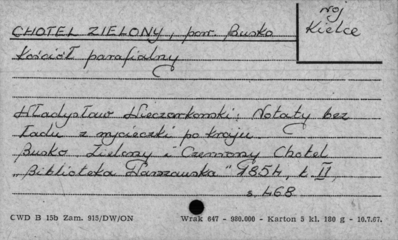 woj
Kielce
CHOTEL ZIELONY, pow. Busko
kościół parafialny
Władysław Wieczorkowski: Notaty bez
ładu z wycieczki po kraju.
Busko Zielony i Czerwony Chotel
"Biblioteka Warszawska" 1854, t. II,
s. 468
CWD B 15b Zam. 915/DW/ON Wrak 647 - 980.000 - Karton 5 kl. 180 g - 10.7.67.